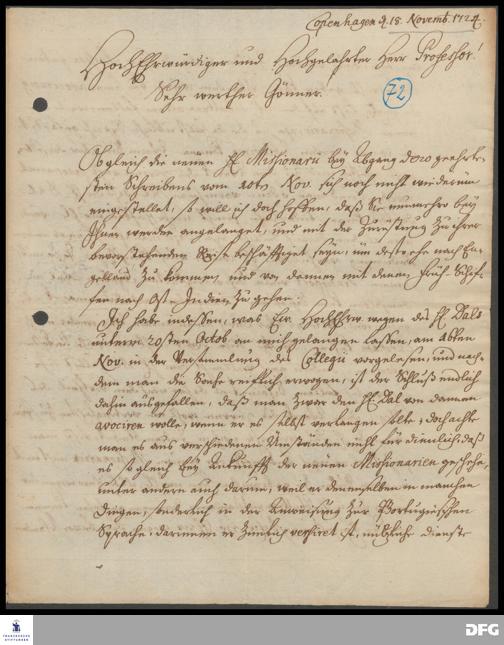 Copenhagen d. 18. Novemb. 1724.
HochEhrwürdiger und Hochgelahrter Herr Professor!
Sehr werther Gönner.
72
Obgleich die neuen H. Missionarii bey Abgang dero geehrte-
sten Schreibens vom 10ten Nov. sich noch nicht wiederum
eingestellet, so will ich doch hoffen, daß Sie nunmehro bey
Ihnen werden angelanget, und mit der Zurüstung zu ihrer
bevorstehenden Reise beschäfftiget seyn, um desto ehe nach En-
gelland zu kommen, und von dannen mit denen Früh-Schif-
fen nach Ost-Indien zu gehen.
Ich habe indessen, was Ew. HochEhrw. wegen des H. Dals
unterm 20sten Octob. an mich gelangen lassen, am 16ten
Nov. in der Versammlung des Collegii vorgelesen, und nach-
dem man die Sache reifflich erwogen, ist der Schluß endlich
dahin ausgefallen, daß man zwar den H. Dal von dannen
avociren wolle, wenn er es selbst verlangen solte; doch achte
man es aus verschiedenen Umständen nicht für dienlich, daß
es so gleich bey Ankunfft der neuen Missionarien geschehe,
unter andern auch darum, weil er denenselben in manchen
Dingen, sonderlich in der Anweisung zur Portugiesischen
Sprache, darinnen er ziemlich versiret ist, nützliche Dienste
FRANCKESCHE STIFTUNGEN
DFG